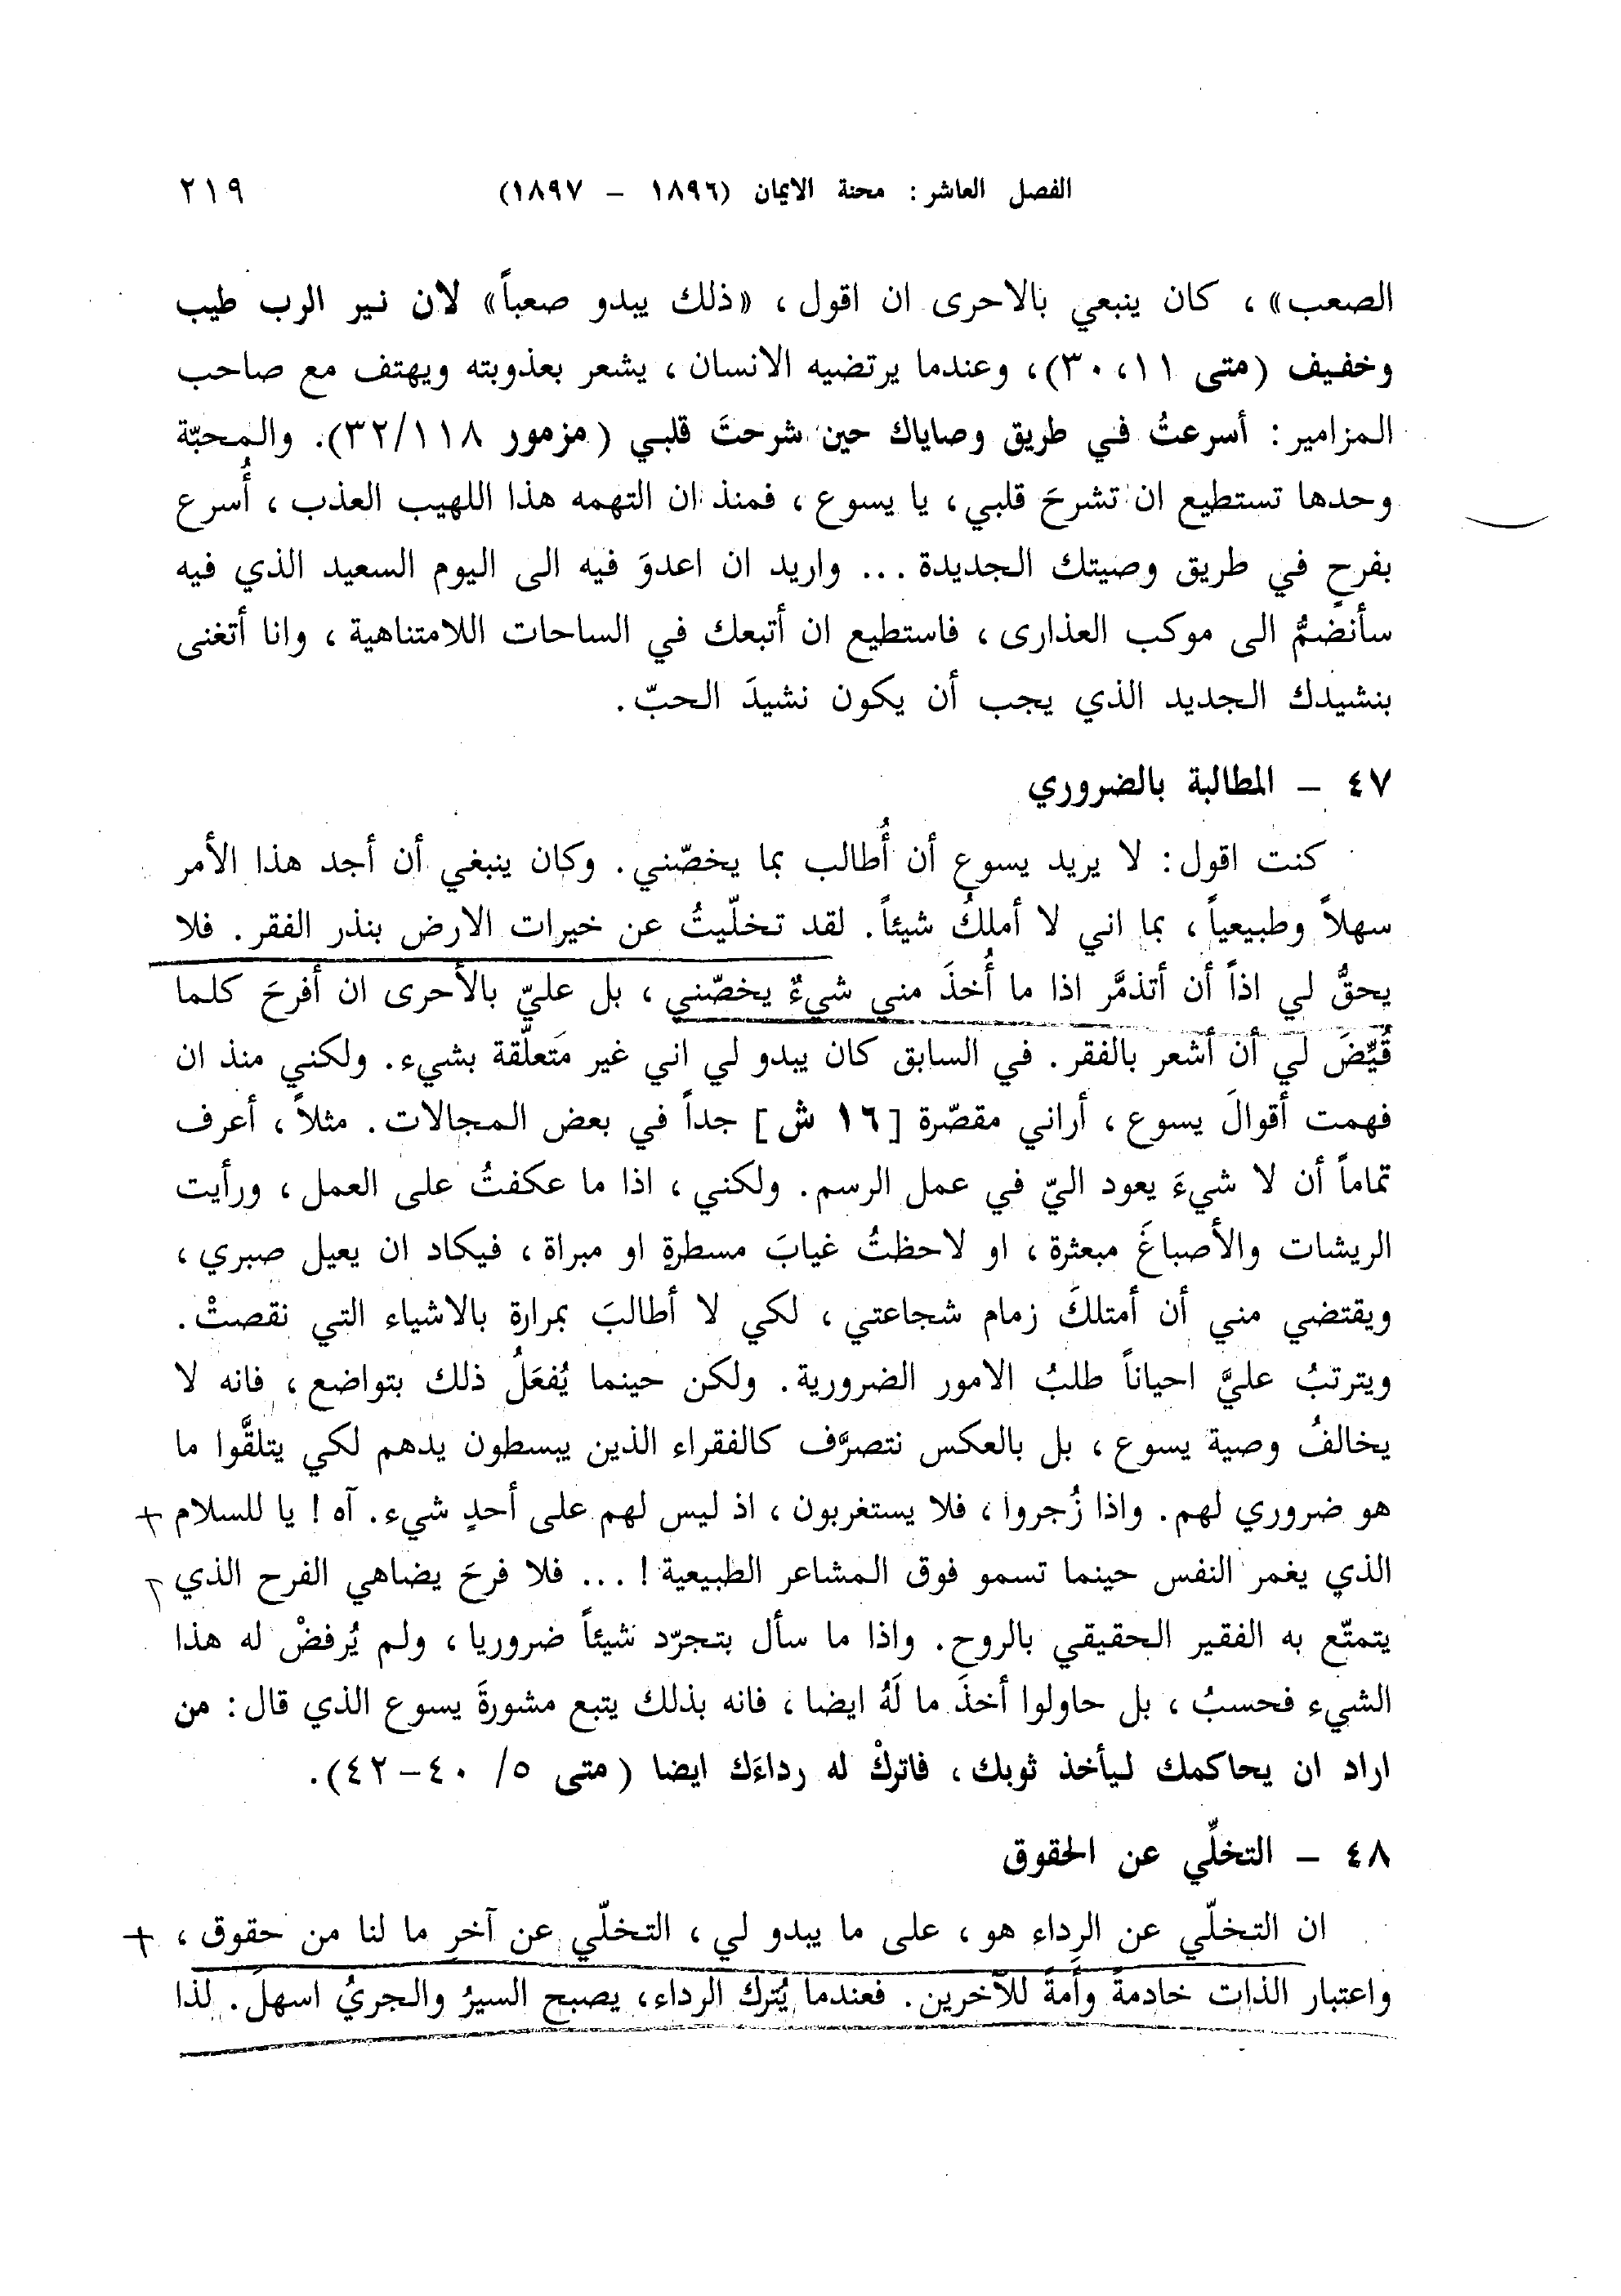 الفصل العاشر: محنة الايمان (١٨٩٦ – ١٨٩٧) ٢١٩
الصعب»، كان ينبعي بالاحرى ان اقول، «ذلك يبدو صعباً» لان نير الرب طيب
وخفيف (متى ١١، ٣٠)، وعندما يرتضيه الانسان، يشعر بعذوبته ويهتف مع صاحب
المزامير: أسرعتُ في طريق وصاياك حين شرحتَ قلبي (مزمور ٣٢/١١٨). والمحبّة
وحدها تستطيع ان تشرحَ قلبي، يا يسوع، فمنذ ان التهمه هذا اللهيب العذب، أُسرع
بفرحٍ في طريق وصيتك الجديدة... واريد ان اعدوَ فيه الى اليوم السعيد الذي فيه
سأنضمُّ الى موكب العذارى، فاستطيع ان أتبعك في الساحات اللامتناهية، وانا أتغنى
بنشيدك الجديد الذي يجب أن يكون نشيدَ الحبّ.
٤٧ – المطالبة بالضروري
كنت اقول: لا يريد يسوع أن أُطالب بما يخصّني. وكان ينبغي أن أجد هذا الأمر
سهلاً وطبيعياً، بما اني لا أملكُ شيئاً. لقد تخلّيتُ عن خيرات الارض بنذر الفقر. فلا
يحقُّ لي اذاً أن أتذمَّر اذا ما أُخذَ مني شيءٌ يخصّني، بل عليّ بالأحرى ان أفرحَ كلما
قُيِّضَ لي أن أشعر بالفقر. في السابق كان يبدو لي اني غير مَتعلّقة بشيء. ولكني منذ ان
فهمت أقوالَ يسوع، أراني مقصّرة [١٦ ش] جداً في بعض المجالات. مثلاً، أعرف
تماماً أن لا شيءَ يعود اليّ في عمل الرسم. ولكني، اذا ما عكفتُ على العمل، ورأيت
الريشات والأصباغَ مبعثرة، او لاحظتُ غيابَ مسطرةٍ او مبراة، فيكاد ان يعيل صبري،
ويقتضي مني أن أمتلكَ زمام شجاعتي، لكي لا أطالبَ بمرارة بالاشياء التي نقصتْ.
ويترتبُ عليَّ احياناً طلبُ الامور الضرورية. ولكن حينما يُفعَلُ ذلك بتواضع، فانه لا
يخالفُ وصية يسوع، بل بالعكس نتصرَّف كالفقراء الذين يبسطون يدهم لكي يتلقَّوا ما
هو ضروري لهم. واذا زُجروا، فلا يستغربون، اذ ليس لهم على أحدٍ شيء. آه! يا للسلام
الذي يغمر النفس حينما تسمو فوق المشاعر الطبيعية!... فلا فرحَ يضاهي الفرح الذي
يتمتّع به الفقير الحقيقي بالروح. واذا ما سأل بتجرّد شيئاً ضروريا، ولم يُرفضْ له هذا
الشيء فحسبُ، بل حاولوا أخذَ ما لَهُ ايضا، فانه بذلك يتبع مشورةَ يسوع الذي قال: من
اراد ان يحاكمك ليأخذ ثوبك، فاتركْ له رداءَك ايضا (متى ٥/ ٤٠–٤٢).
٤٨ – التخلّي عن الحقوق
ان التخلّي عن الرداء هو، على ما يبدو لي، التخلّي عن آخرِ ما لنا من حقوق،
واعتبار الذات خادمةً وأَمةً للآخرين. فعندما يُترك الرداء، يصبح السيرُ والجريُ اسهلَ. لذا